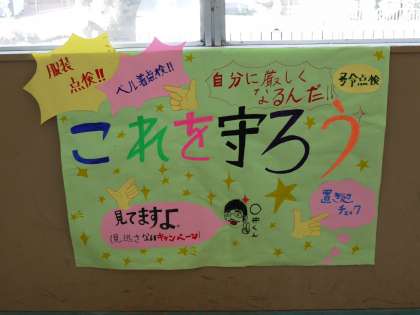 服装
点検!!
ベル着点検!!
自分に厳しく
なるんだ!!
号令点検
これを守ろう
見てますよ。
(見逃さないキャンペーン)
〇井くん
置き勉
チェック